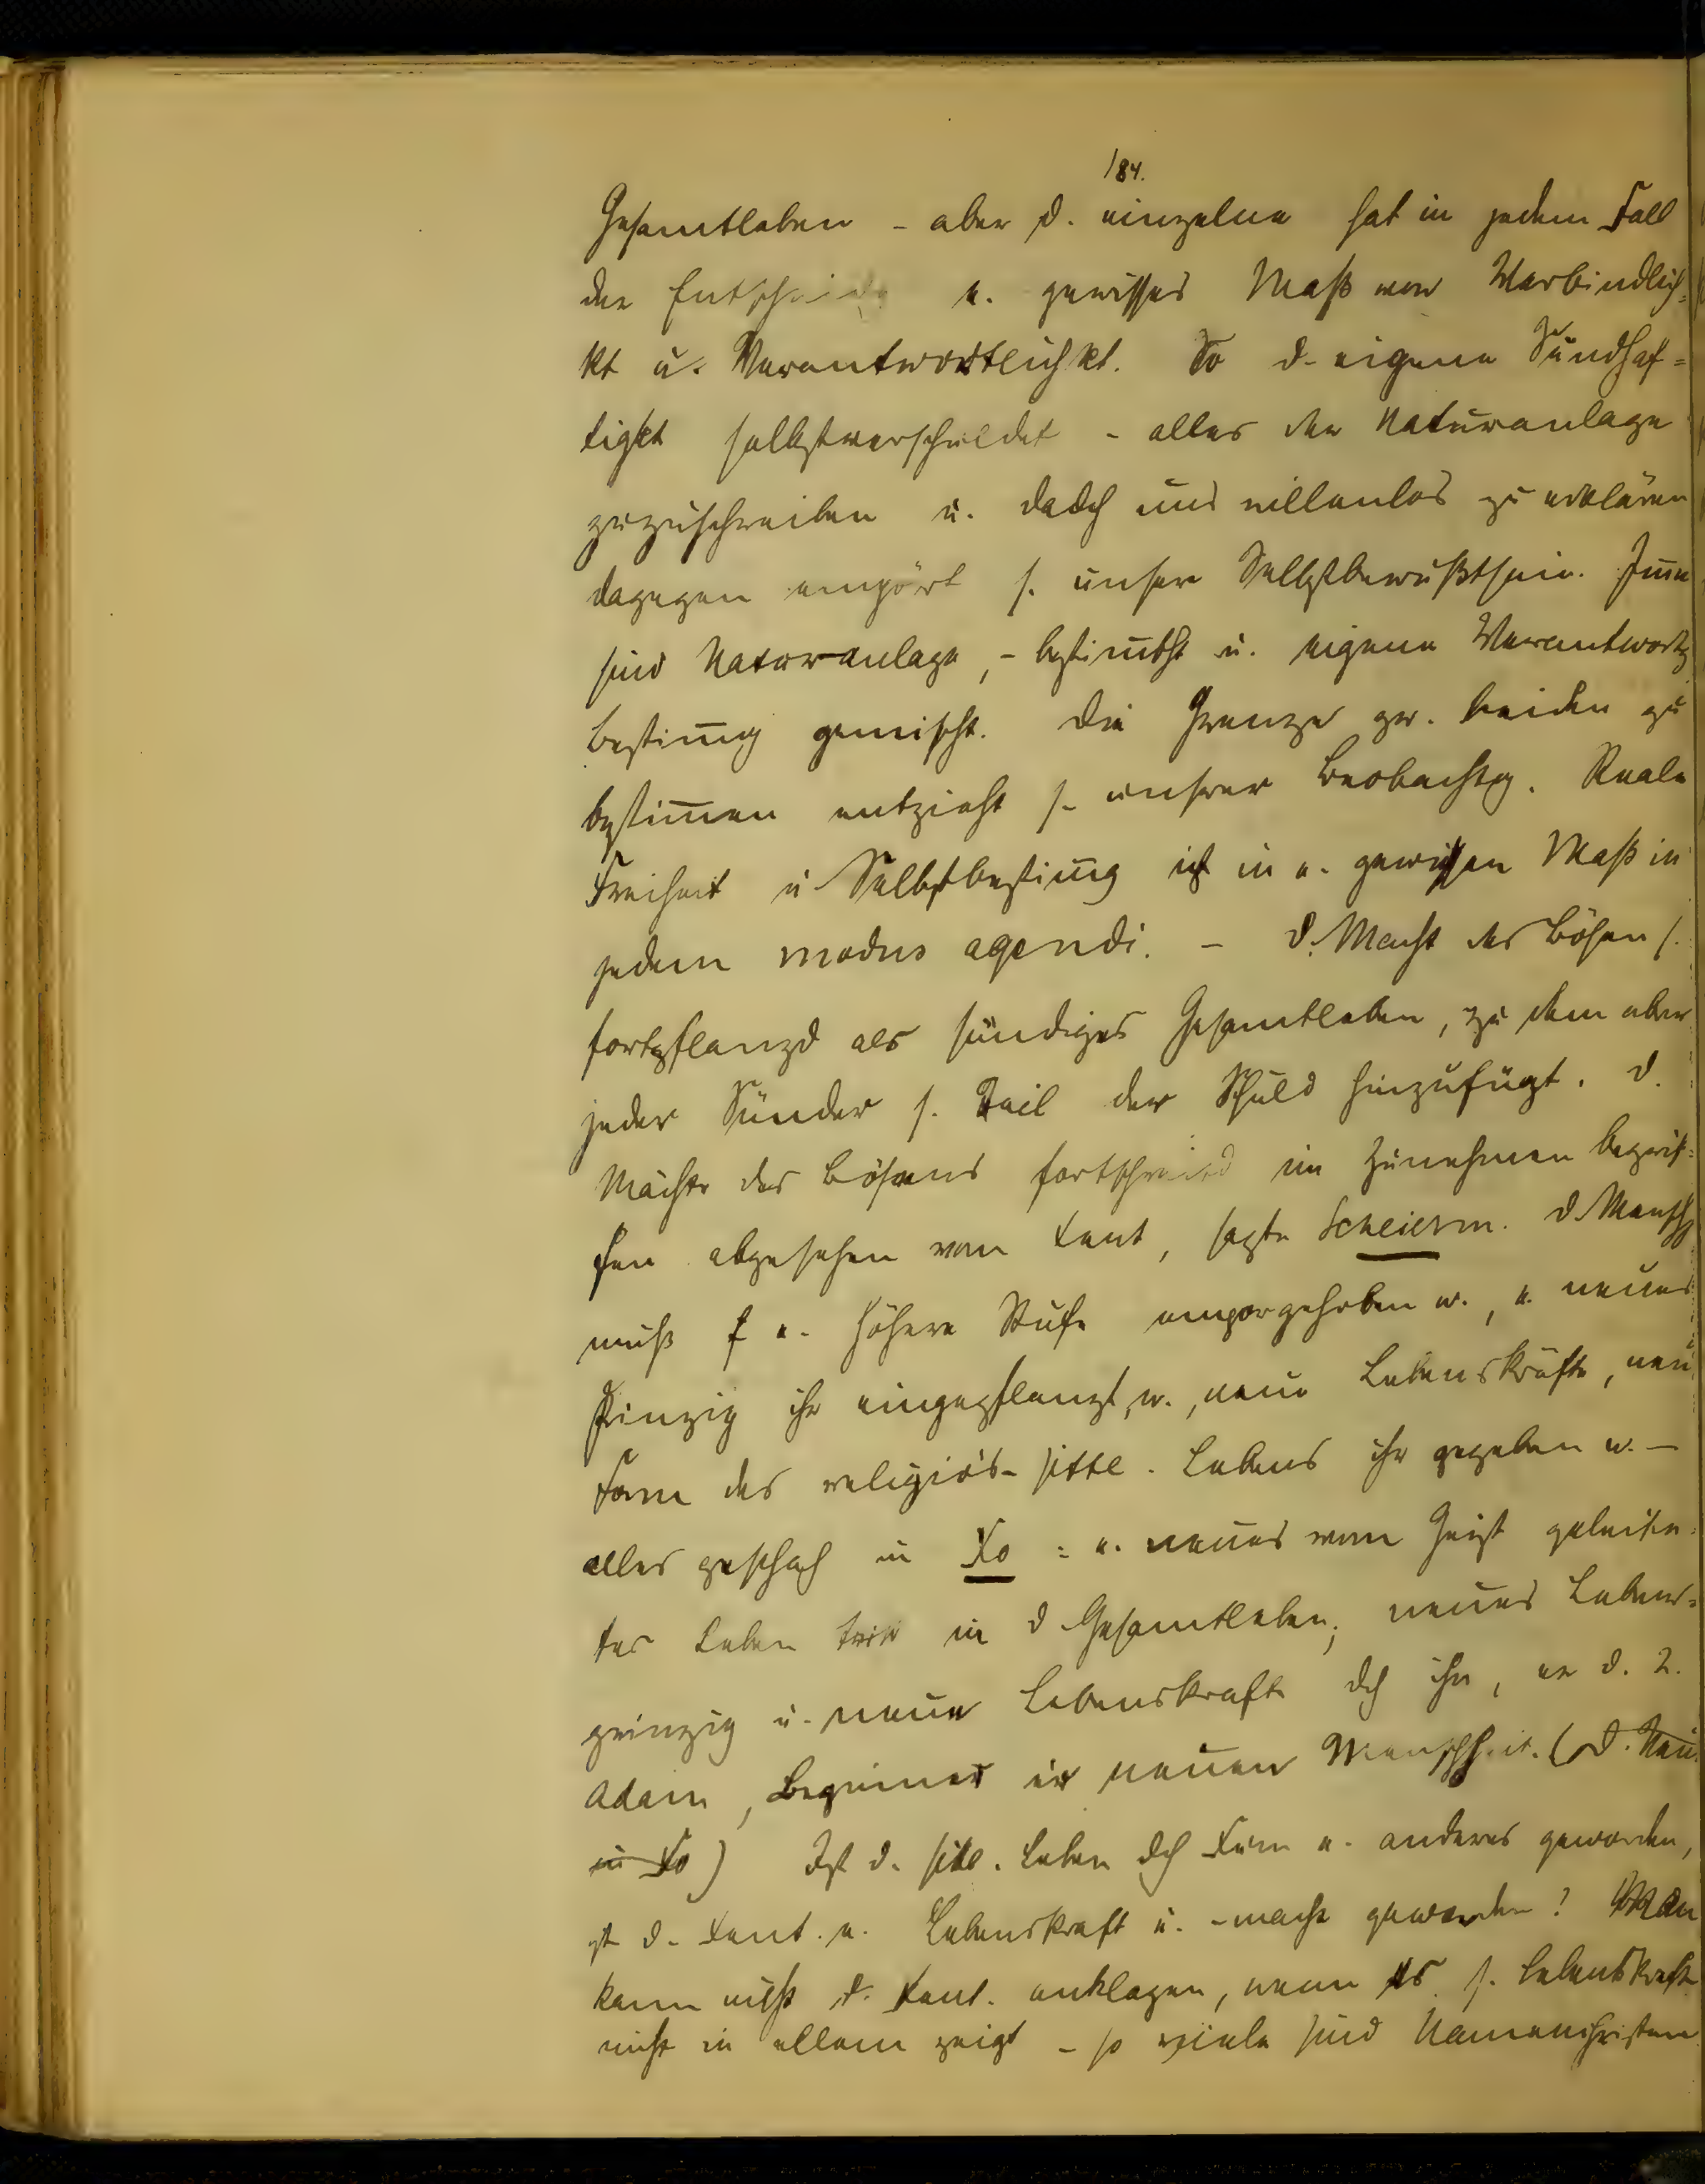 184.
Gesamtleben - aber d. einzelne hat in jedem Fall
der Entscheidg e. gewisses Maß von Verbindlich=
kt u. Verantwortlichkt. So d. eigene Sündhaf=
tigkt selbstverschuldet - alles der Naturanlage
zuzuschreiben u. dadch uns willenlos zu erklären
dagegen empört s. unser Selbstbewußtsein. Im̅er
sind Naturanlage, - bestim̅th u. eigene Verantwortg
Bestim̅g gemischt. Die Grenze zw. beiden zu
bestim̅en entzieht s. unsrer Beobachtg. Reale
Freiheit u Selbstbestim̅g ist in e. gewissen Maß in
jedem modus agendi. - D. Macht des Bösen s.
fortpflanzd als sündiges Gesamtleben, zu dem aber
jeder Sünder s. Teil der Schuld hinzufügt. D.
Mächte des Bösens fortschreitd im Zunehmen begrif=
fen abgesehen vom Xent, sagte Scheierm. D. Menschh
muß f e. höhere Stufe emporgehoben w., e. neues
Prinzip ihr eingepflanzt w., neue Lebenskräfte, neu
Form des religiös-sittl. Lebens ihr gegeben w. -
alles geschah in Xo = e. neues vom Geist geleite=
tes Leben tritt in d Gesamtleben, neues Lebens=
prinzip u. neue Lebenskraft dch ihn, er d. 2.
Adam, Beginner er neuen Menschheit. (D. Neue
in Xo) Ist d. sittl. Leben dch Xtum e. anderes geworden,
ist d. Xent. e. Lebenskraft u. -macht geworden? Man
kann nicht d. Xent. anklagen, wenn es s. Lebenskraft
nicht in allem zeigt - so viele sind Namenchristen